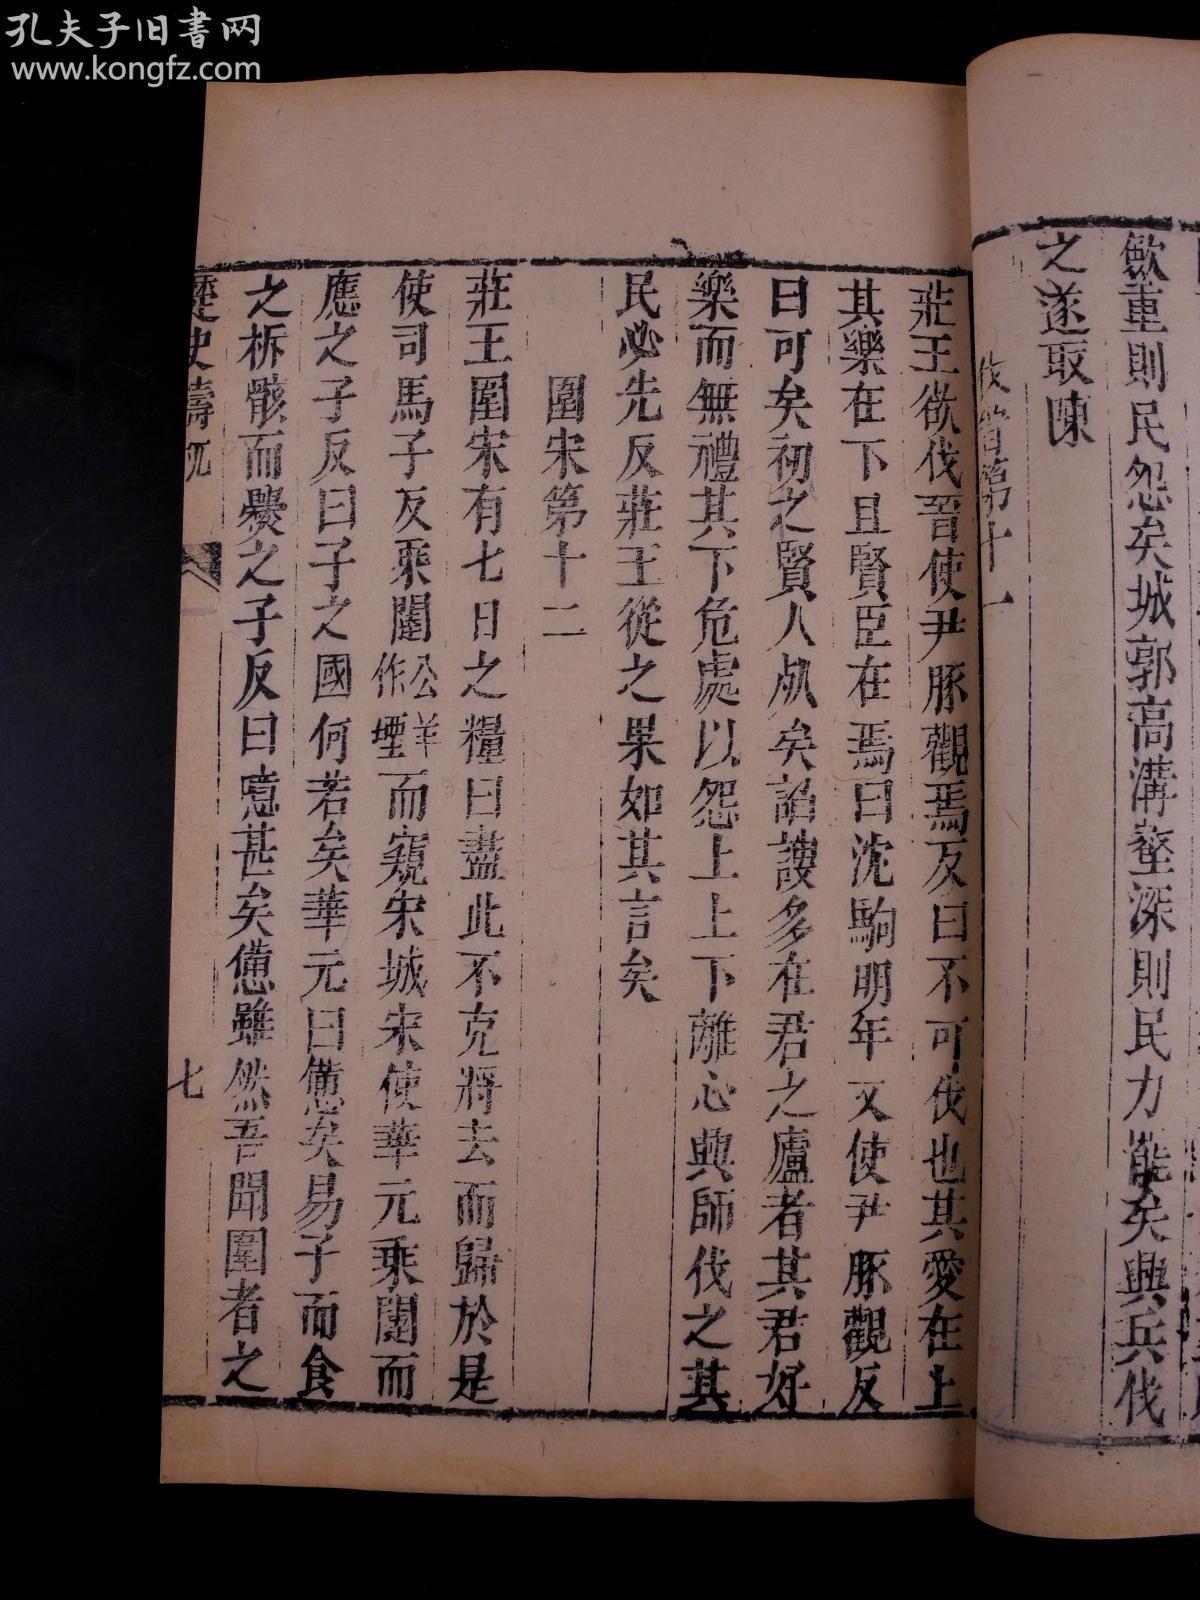 孔夫子旧书网
www.kongfz.com
歛重則民怨矣城郭高溝壑深則民力罷矣興兵伐
之遂取陳
伐晉第十一
莊王欲伐晉使尹豚觀焉反曰不可伐也其愛在上
其樂在下且賢臣在焉曰沈駒明年又使尹豚觀反
曰可矣初之賢人死矣諂諛多在君之廬者其君好
樂而無禮其下危處以怨上上下離心興師伐之其
民必先反莊王從之果如其言矣
圍宋第十二
莊王圍宋有七日之糧曰盡此不克將去而歸於是
使司馬子反乘闉公羊作堙而窺宋城宋使華元乘闉而
應之子反曰子之國何若矣華元曰憊矣易子而食
之析骸而爨之子反曰噫甚矣憊雖然吾聞圍者之
歷史
七